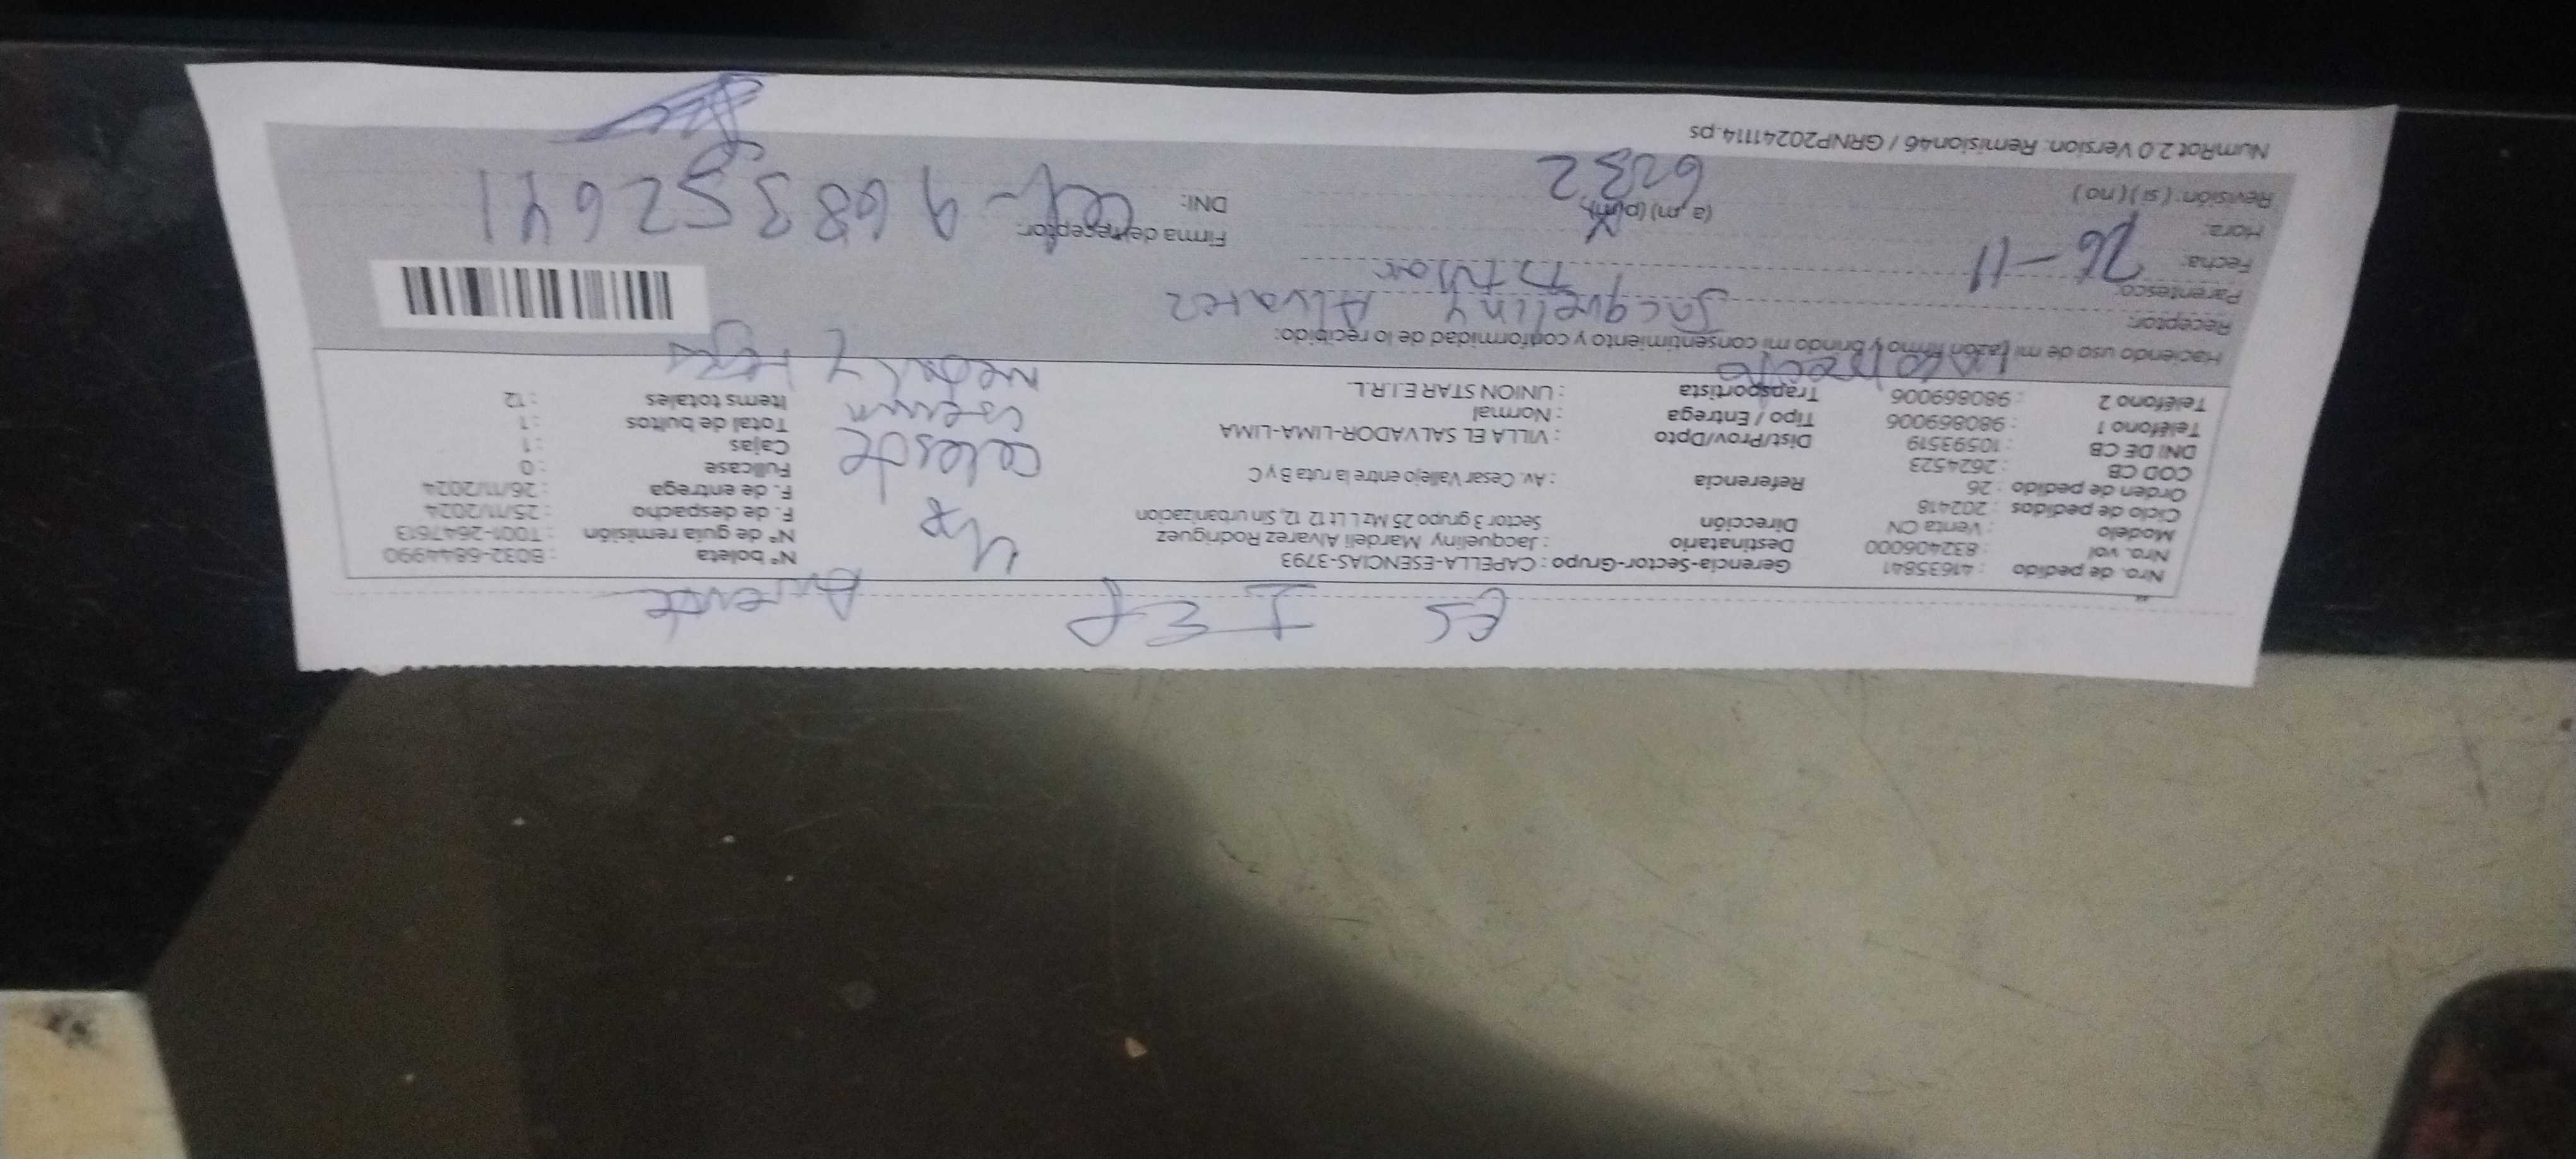 ES I E P Ausente
Nro. de pedido : 41635841
Nro. vol : 832406000
Modelo : Venta CN
Ciclo de pedidos : 202418
Orden de pedido : 26
COD CB : 2624523
DNI DE CB : 10593519
Teléfono 1 : 980869006
Teléfono 2 : 980869006
Gerencia-Sector-Grupo : CAPELLA-ESENCIAS-3793
Destinatario : Jacqueliny Mardeli Alvarez Rodriguez
Dirección Sector 3 grupo 25 Mz L Lt 12 12, Sin urbanizacion
Referencia : Av. Cesar Vallejo entre la ruta B y C
Dist/Prov/Dpto : VILLA EL SALVADOR-LIMA-LIMA
Tipo / Entrega : Normal
Trasportista : UNION STAR E.I.R.L.
celeste
N° boleta : B032-6844990
N° de guia remisión : T001-2647613
F. de despacho : 25/11/2024
F. de entrega : 26/11/2024
Fullcase : 0
Cajas : 1
Total de bultos : 1
Items totales : 12
Haciendo uso de mi razón firmo y brindo mi consentimiento y conformidad de lo recibido:
Receptor: Jacqueliny Alvarez
Parentesco: Titular
Fecha: 26-11
Hora: (a.m) (p.m)
Revisión: ( si ) ( no ) 6232
Firma de receptor:
DNI: Cel- 968352641
NumRot 2.0 Version. Remision46 / GRNP20241114.ps